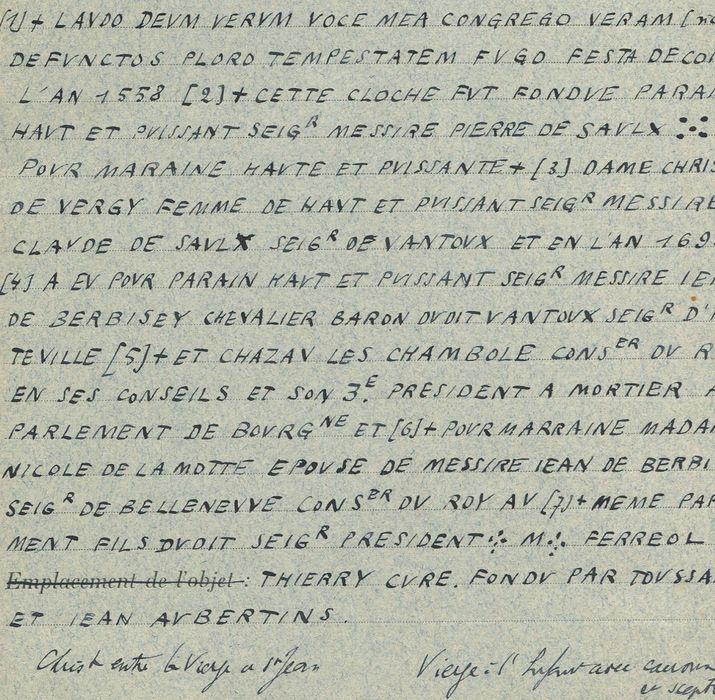 [1]+ LAVDO DEVM VERVM VOCE MEA CONGREGO VERAM
DEFVNCTOS PLORO TEMPESTATEM FVGO FESTA DECO
L'AN 1558 [2]+ CETTE CLOCHE FVT FONDVE PARA
HAVT ET PVISSANT SEIGR MESSIRE PIERRE DE SAVLX
POVR MARAINE HAVTE ET PVISSANTE+ [3] DAME CHRIS
DE VERGY FEMME DE HAVT ET PVISSANT SEIGR MESSIRE
CLAVDE DE SAVLX SEIGR DE VANTOVX ET EN L'AN 169
[4] A EV POVR PARAIN HAVT ET PVISSANT SEIGR MESSIRE IE
DE BERBISEY CHEVALIER BARON DVDIT VANTOVX SEIGR D'
TEVILLE [5]+ ET CHAZAV LES CHAMBOLE CONSER DV R
EN SES CONSEILS ET SON 3.E PRESIDENT A MORTIER A
PARLEMENT DE BOVRGNE ET [6]+ POVR MARRAINE MADA
NICOLE DE LA MOTTE EPOVSE DE MESSIRE IEAN DE BERBI
SEIGR DE BELLENEVVE CONSER DV ROY AV [7]+ MEME PAR
MENT FILS DVDIT SEIGR PRESIDENT ∴ M∴ FERREOL
Emplacement de l'objet : THIERRY CVRE. FONDV PAR TOVSSA
ET IEAN AVBERTINS.
Christ entre la Vierge et St Jean
Vierge à l'Enfant avec couronn
et scept